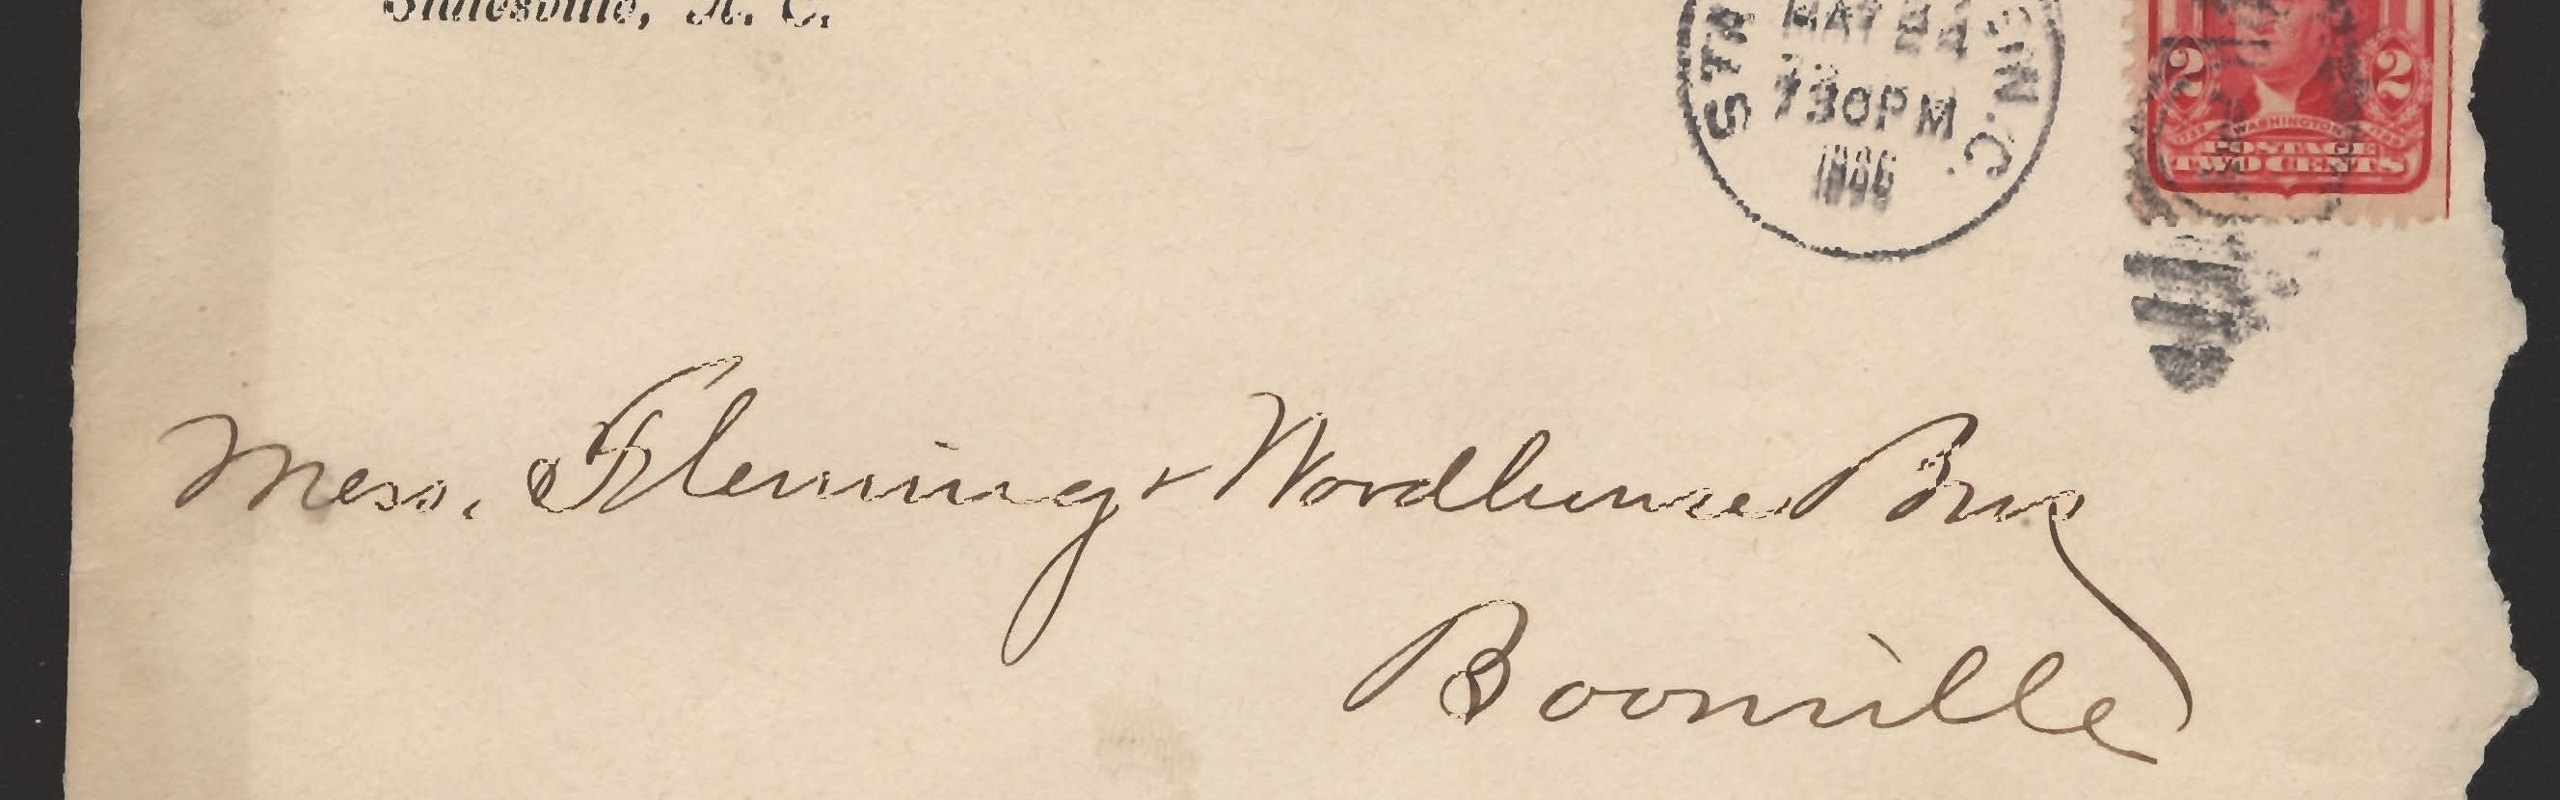 Statesville, N. C.
MAY 24
7 30 PM
N. C.
2 2
WASHINGTON
POSTAGE
TWO CENTS
Mess. Fleming & Woodhouse Bros
Boonville